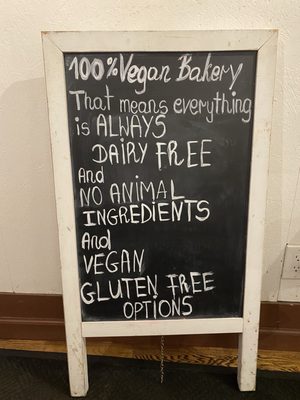 100% Vegan Bakery
That means everything
is ALWAYS
DAIRY FREE
And
NO ANIMAL
INGREDIENTS
And
VEGAN
GLUTEN FREE
OPTIONS